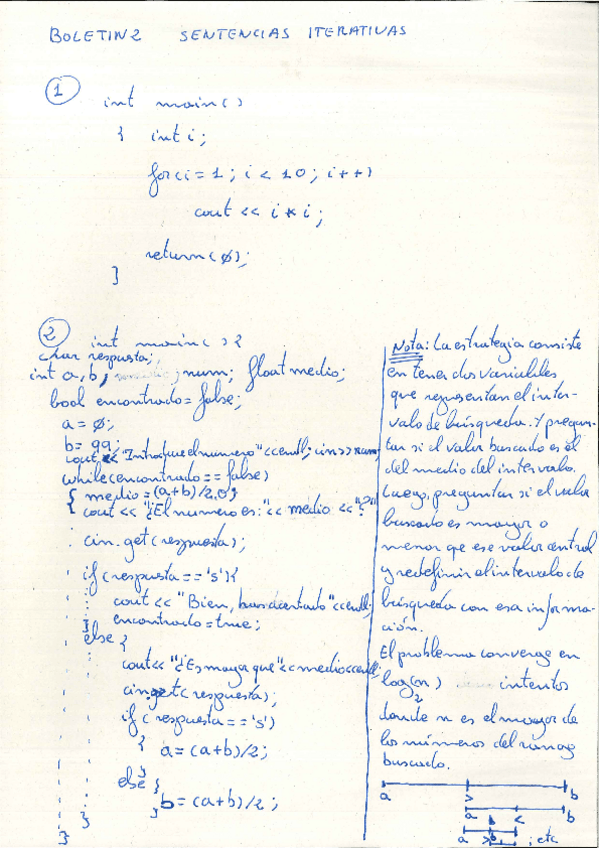 BOLETIN 2 SENTENCIAS ITERATIVAS
1
int main()
{ int i;
for(i=1; i<10; i++)
cout << i*i;
return(ø);
}
2
int main(){
char respuesta;
int a,b, num; float medio;
bool encontrado=false;
a=ø;
b=99;
cout << "Introduce el numero"<<endl; cin>>num;
while(encontrado==false)
{ medio=(a+b)/2.0;
{ cout << "¿El numero es:"<< medio <<"?"
cin.get(respuesta);
if(respuesta=='s'){
cout << "Bien, has acertado"<<endl;
encontrado=true;
}
else {
cout<<"¿Es mayor que"<<medio<<endl;
cin.get(respuesta);
if(respuesta=='s')
{ a=(a+b)/2;
}
else {
b=(a+b)/2;
}
}
}
Nota: La estrategia consiste
en tener dos variables
que representan el inter-
valo de búsqueda. Y pregun-
tar si el valor buscado es el
del medio del intervalo.
Luego, preguntar si el valor
buscado es mayor o
menor que ese valor central
y redefinir el intervalo de
búsqueda con esa informa-
ción.
El problema converge en
log₂(n) intentos
donde n es el mayor de
los números del rango
buscado.
a b
> a < b
a b
; etc